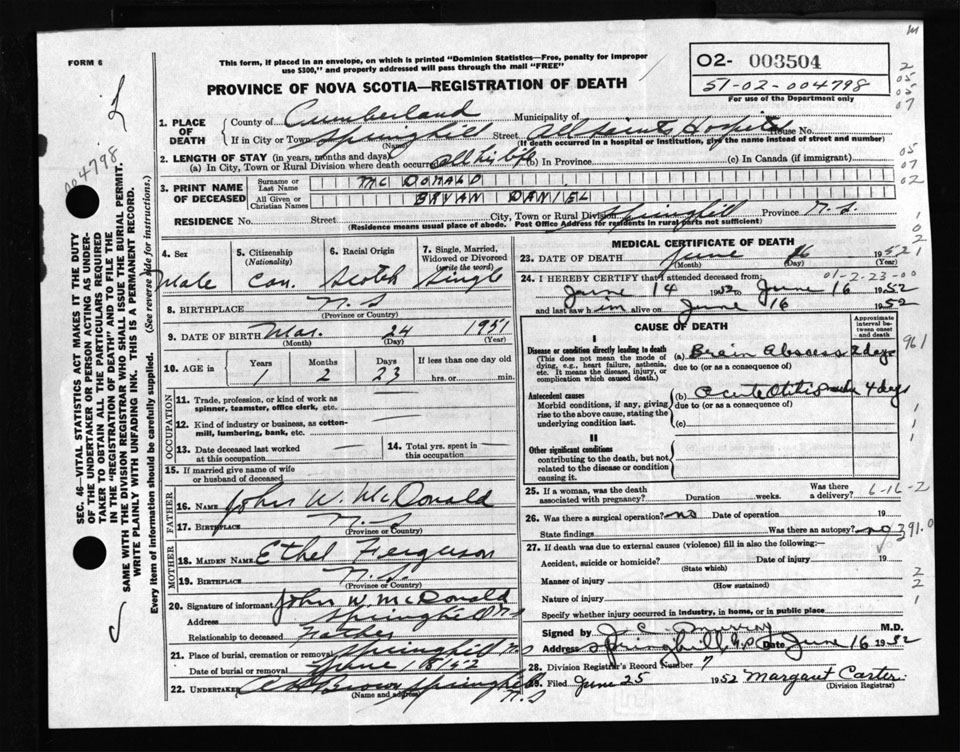 FORM 6
This form, if placed in an envelope, on which is printed "Dominion Statistics—Free, penalty for improper
use $300," and properly addressed will pass through the mail "FREE"
02- 003504
51-02-004798
For use of the Department only
PROVINCE OF NOVA SCOTIA—REGISTRATION OF DEATH
004798
SEC. 46—VITAL STATISTICS ACT MAKES IT THE DUTY
OF THE UNDERTAKER OR PERSON ACTING AS UNDER-
TAKER TO OBTAIN ALL THE PARTICULARS REQUIRED
IN THE "REGISTRATION OF DEATH" AND TO FILE THE
SAME WITH THE DIVISION REGISTRAR WHO SHALL ISSUE THE BURIAL PERMIT.
WRITE PLAINLY WITH UNFADING INK. THIS IS A PERMANENT RECORD.
Every item of information should be carefully supplied. (See reverse side for instructions.)
1. PLACE OF DEATH
County of Cumberland Municipality of
If in City or Town Springhill Street All Saints Hospital House No.
(Name) (If death occurred in a hospital or institution, give the name instead of street and number)
2. LENGTH OF STAY (in years, months and days)
(a) In City, Town or Rural Division where death occurred all his life (b) In Province (c) In Canada (if immigrant)
3. PRINT NAME OF DECEASED
Surname or Last Name MC DONALD
All Given or Christian Names BRYAN DANIEL
RESIDENCE No. Street City, Town or Rural Division Springhill Province N.S.
(Residence means usual place of abode. Post Office Address for residents in rural parts not sufficient)
4. Sex
Male
5. Citizenship (Nationality)
Can.
6. Racial Origin
Scotch
7. Single, Married, Widowed or Divorced (write the word)
Single
8. BIRTHPLACE N.S
(Province or Country)
9. DATE OF BIRTH Mar. 24 1951
(Month) (Day) (Year)
10. AGE in Years 1 Months 2 Days 23 If less than one day old hrs. or min.
OCCUPATION
11. Trade, profession or kind of work as spinner, teamster, office clerk, etc.
12. Kind of industry or business, as cotton-mill, lumbering, bank, etc.
13. Date deceased last worked at this occupation
14. Total yrs. spent in this occupation
15. If married give name of wife or husband of deceased
FATHER
16. Name John W. McDonald
17. Birthplace N.S.
(Province or Country)
MOTHER
18. MAIDEN NAME Ethel Ferguson
19. BIRTHPLACE N.S.
(Province or Country)
20. Signature of informant John W. McDonald
Address Springhill N.S
Relationship to deceased Father
21. Place of burial, cremation or removal Springhill N.S
Date of burial or removal June 18/52
22. UNDERTAKER Brown Springhill N.S
(Name and address)
MEDICAL CERTIFICATE OF DEATH
23. DATE OF DEATH June 16 1952
(Month) (Day) (Year)
01-2-23-00
24. I HEREBY CERTIFY that I attended deceased from:
June 14 1952 to June 16 1952
and last saw him alive on June 16 1952
CAUSE OF DEATH
Approximate interval between onset and death
I
Disease or condition directly leading to death
(This does not mean the mode of dying, e.g., heart failure, asthenia, etc. It means the disease, injury, or complication which caused death.)
(a) Brain Abscess 2 days
due to (or as a consequence of)
Antecedent causes
Morbid conditions, if any, giving rise to the above cause, stating the underlying condition last.
(b) Acute Otitis media 4 days
due to (or as a consequence of)
(c)
II
Other significant conditions
contributing to the death, but not related to the disease or condition causing it.
25. If a woman, was the death associated with pregnancy? Duration weeks. Was there a delivery?
6-16-2
26. Was there a surgical operation? no Date of operation 19
State findings Was there an autopsy? no
391.0
27. If death was due to external causes (violence) fill in also the following:—
Accident, suicide or homicide? Date of injury 19
(State which)
Manner of injury
(How sustained)
Nature of injury
Specify whether injury occurred in industry, in home, or in public place
Signed by J. C. Murray M.D.
Address Springhill, N.S. Date June 16 1952
28. Division Registrar's Record Number 7
29. Filed June 25 1952 Margaret Carter
(Division Registrar)
961